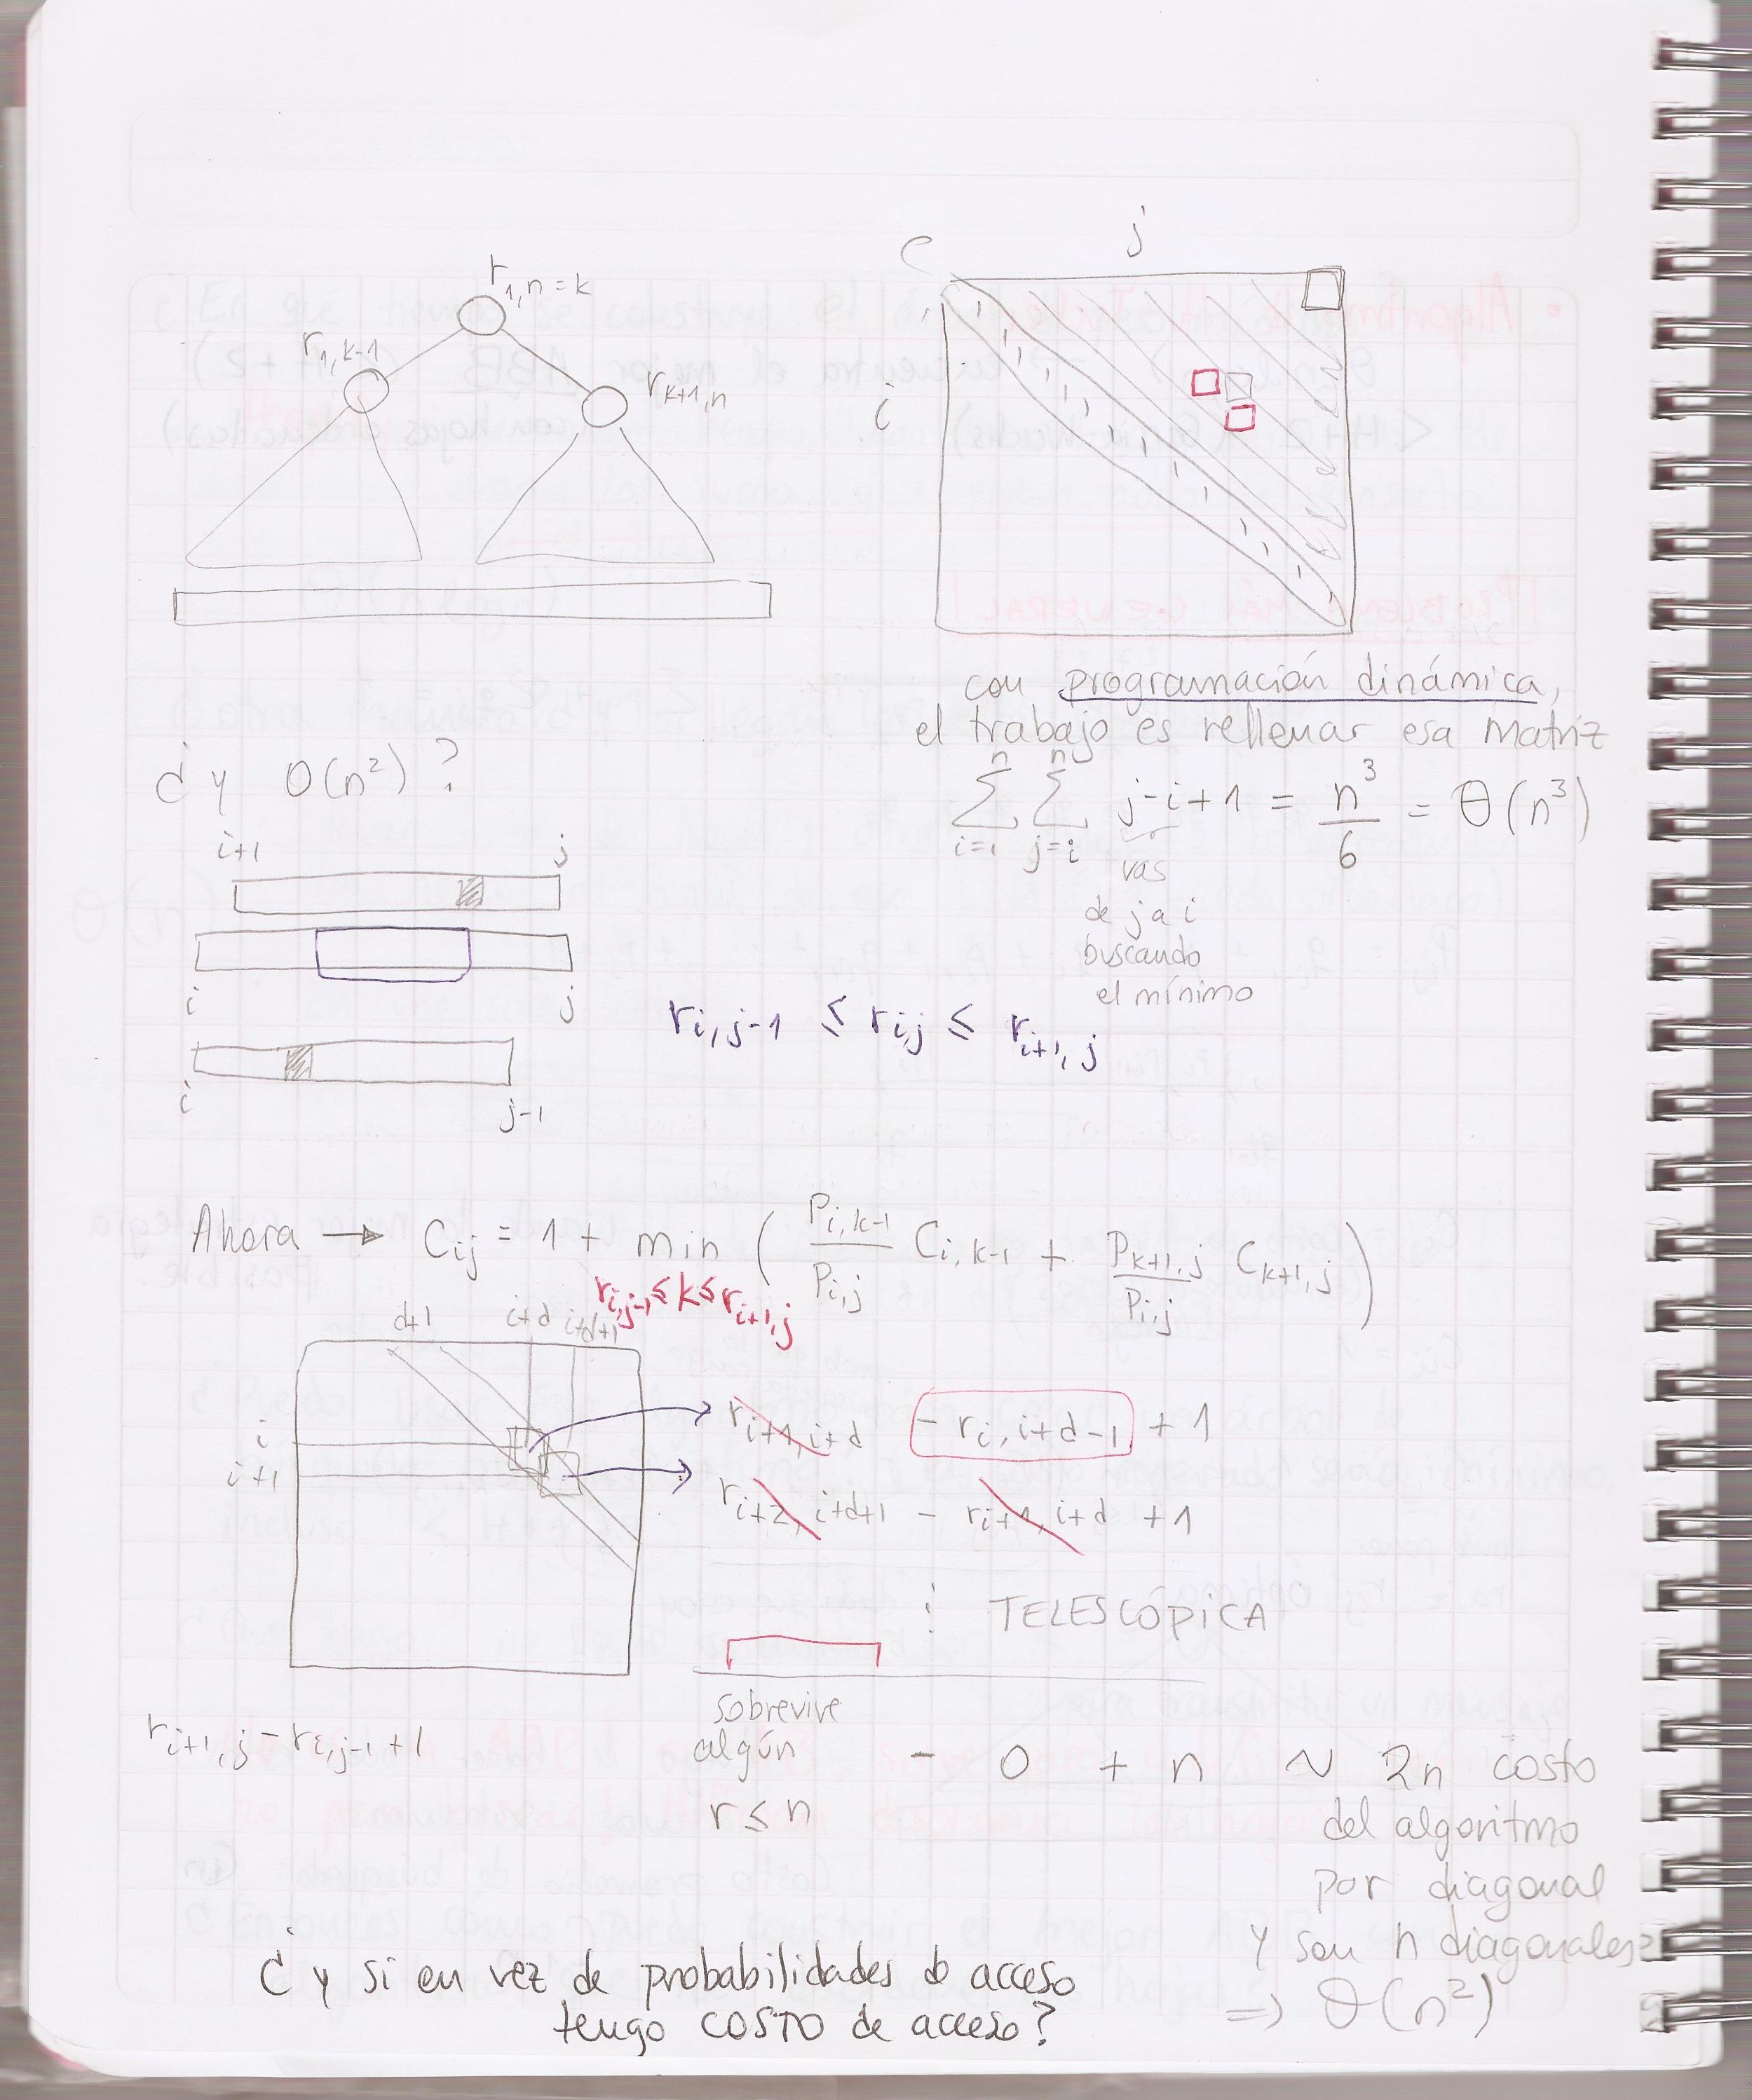 r1,n = k
r1,k-1
rk+1,n
C
j
i
con programación dinámica,
el trabajo es rellenar esa matriz
n n
∑ ∑ j-i+1 = n³/6 = Θ(n³)
i=1 j=i
vas
de j a i
buscando
el mínimo
¿ y O(n²) ?
i+1 j
i j
i j-1
ri,j-1 ≤ rij ≤ ri+1,j
Ahora → Cij = 1 + min ( Pi,k-1/Pi,j Ci,k-1 + Pk+1,j/Pi,j Ck+1,j )
ri,j-1 ≤ k ≤ ri+1,j
d+1 i+d i+d+1
i
i+1
ri+1,i+d - ri,i+d-1 + 1
ri+2,i+d+1 - ri+1,i+d + 1
⋮ TELESCÓPICA
ri+1,j - ri,j-1 + 1
sobrevive
algún
r ≤ n
- 0 + n ~ 2n costo
del algoritmo
por diagonal
y son n diagonales
⇒ Θ(n²)
¿ y si en vez de probabilidades de acceso
tengo COSTO de acceso?